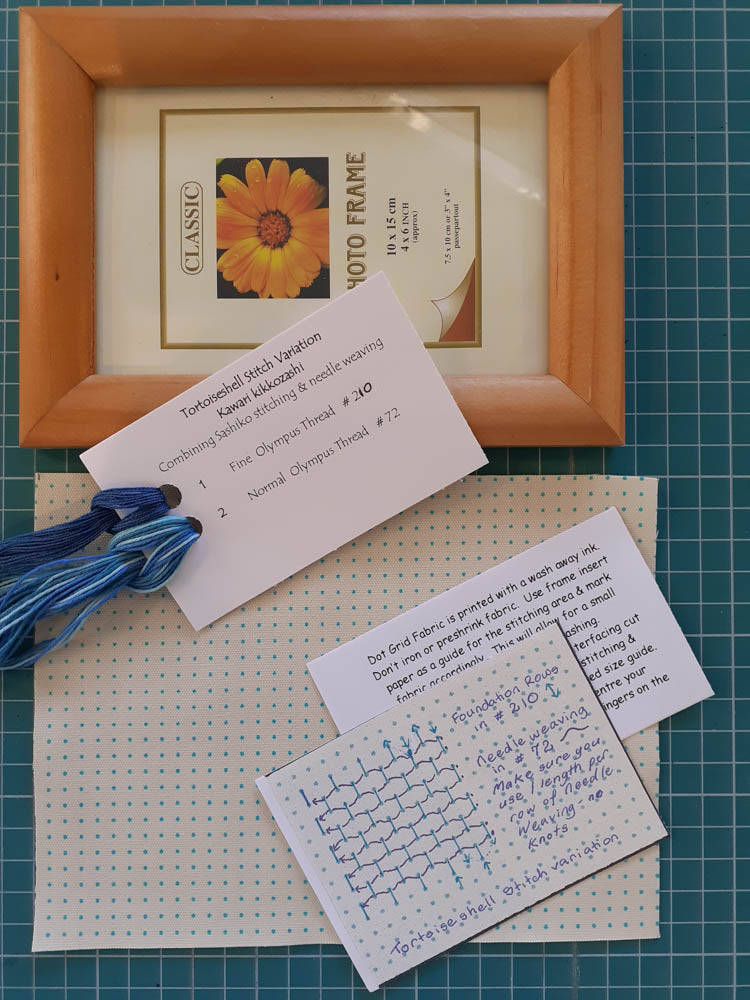 CLASSIC
HOTO FRAME
10 x 15 cm
4 x 6 INCH
(approx)
7.5 x 10 cm or 3" x 4"
passepartout
Tortoiseshell Stitch Variation
Kawari kikkozashi
Combining Sashiko stitching & needle weaving
1 Fine Olympus Thread # 210
2 Normal Olympus Thread # 72
Dot Grid Fabric is printed with a wash away ink.
Don't iron or preshrink fabric. Use frame insert
paper as a guide for the stitching area & mark
fabric accordingly. This will allow for a small
ashing.
terfacing cut
stitching &
ed size guide.
entre your
ingers on the
Foundation Rows
in # 210
needle weaving
in # 72
Make sure you
use 1 length per
row of needle
weaving - no
Knots
Tortoiseshell Stitch variation